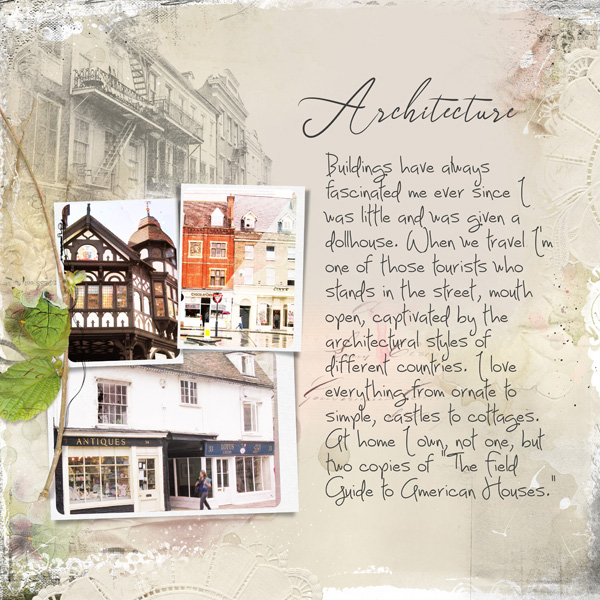 Architecture
Buildings have always
fascinated me ever since I
was little and was given a
dollhouse. When we travel I'm
one of those tourists who
stands in the street, mouth
open, captivated by the
architectural styles of
different countries. I love
everything from ornate to
simple, castles to cottages.
At home I own, not one, but
two copies of "The Field
Guide to American Houses."
ANTIQUES